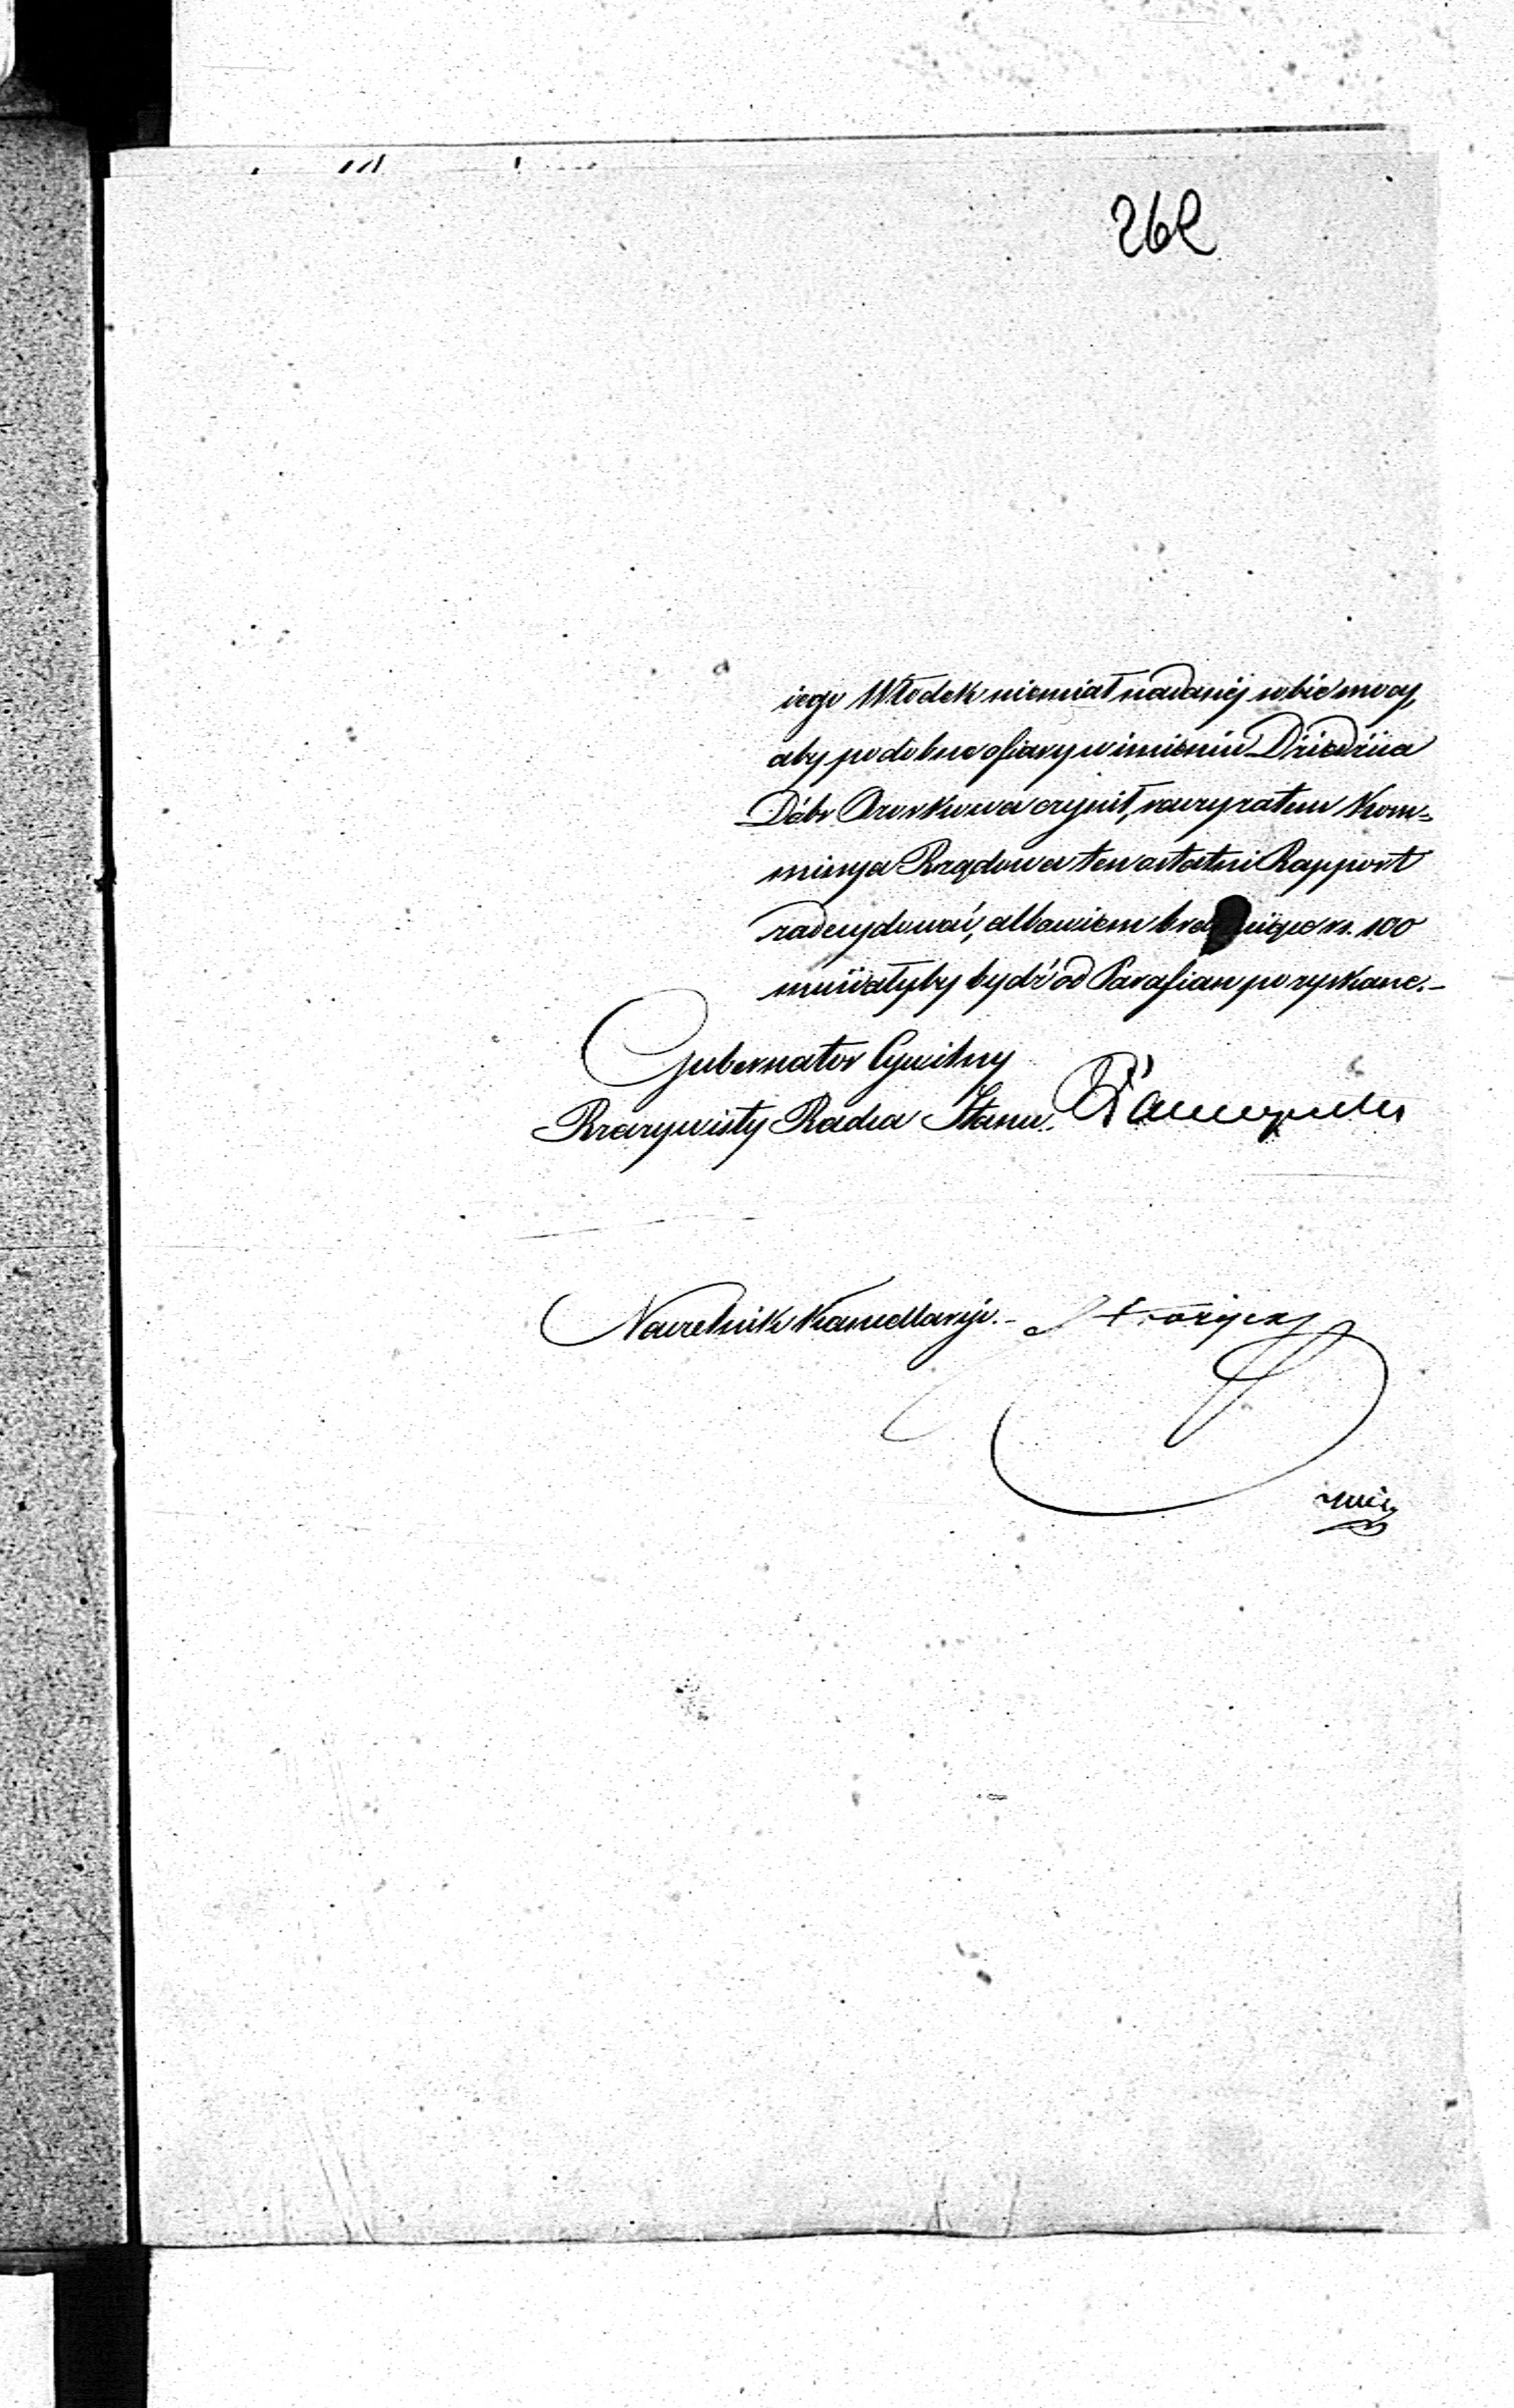 262
iego Włodek niemiał nadanéj sobie mocy,
aby podobne ofiary w imieniu Dziedzica
Dóbr czynił, raczy zatem Kom=
missya Rządowa ten ostatni Rapport
zadecydować, albowiem rs. 100
musiałyby bydź od Parafian pozyskane.–
Gubernator Cywilny
Rzeczywisty Radca Stanu.
Naczelnik Kancellaryi.–